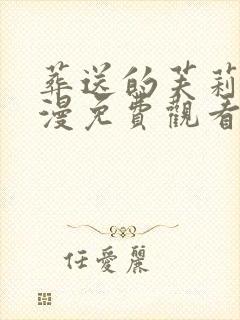 葬送的芙莉
漫免費觀看
任愛麗